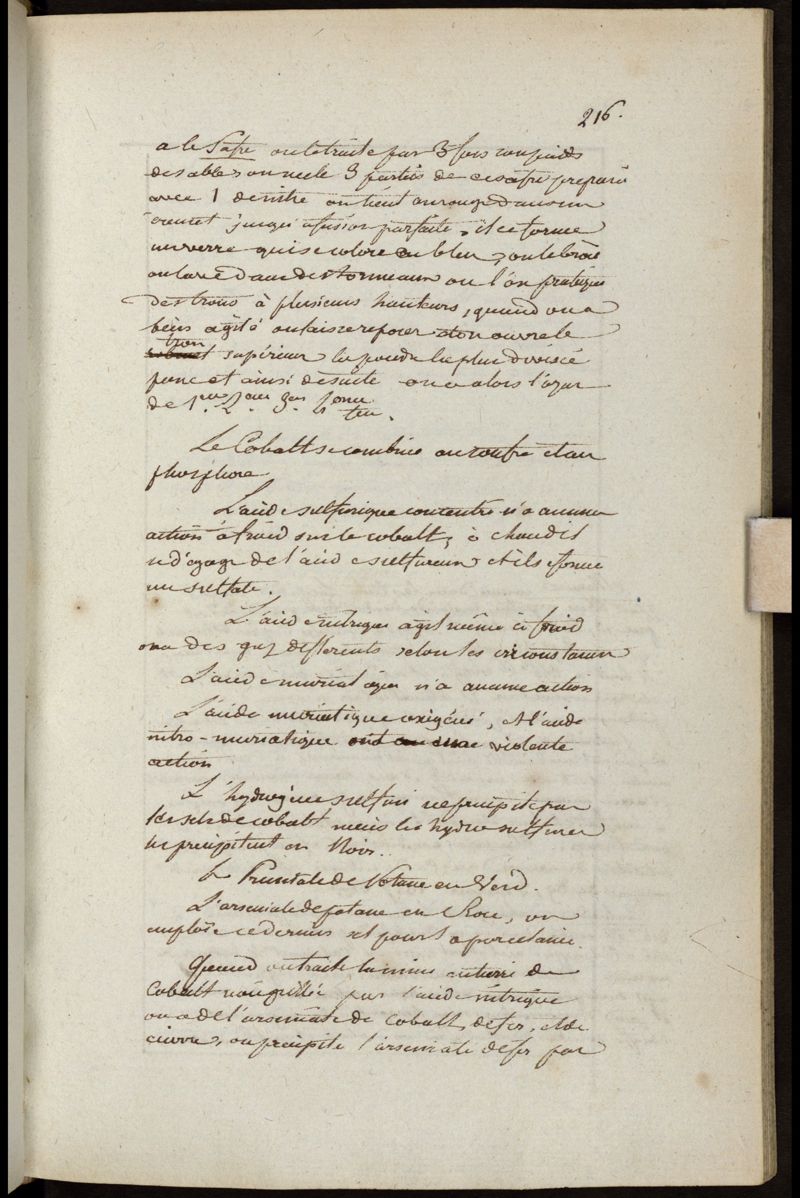 216.
a le Safre on le traite par 3 fois son poids
de sable on mele 3 parties de ce safre preparé
avec 1 de nitre on tient au rouge dans un
creuset jusqu'a fusion parfaite, il se forme
un verre qui se colore en bleu, on le broie
on lave dans des tonneaux ou l'on pratique
des trous à plusieurs hauteurs, quand on a
bien agité on laisse reposer et on ouvre le
trou
robinet supérieur la poudre la plus divisée
passe et ainsi de suite on a alors l'azur
de 1er 2eme 3eme feu.
Le Cobalt se combine au soufre et au
phosphore
L'acide sulfurique concentré n'a aucune
action à froid sur le cobalt, à chaud il
se dégage de l'acide sulfureux et il se forme
un sulfate.
L'acide nitrique agit même à froid
on a des gaz differents selon les circonstances
L'acide muriatique n'a aucune action
L'acide muriatique oxigéné, et l'acide
nitro-muriatique ont une violente
action
L'hydrogène sulfuré ne precipite pas
les sels de cobalt mais les hydrosulfures
les precipitent en Noir.
le Prussiate de Potasse en Verd.
L'arseniate de potasse en Rose, on
emploie ce dernier sel pour la porcelaine.
Quand on traite la mine entiere de
Cobalt non grillée par l'acide nitrique
on a de l'arseniate de Cobalt, de fer, et de
cuivre, on precipite l'arseniate de fer par